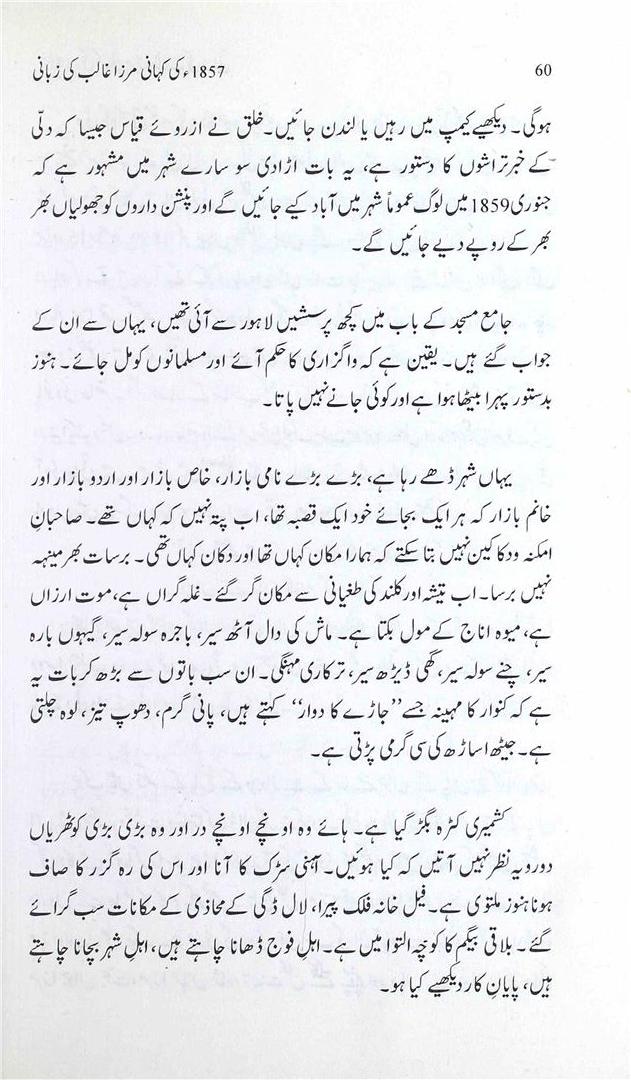 60
1857ء کی کہانی مرزا غالب کی زبانی
ہوگی۔ دیکھیے کیمپ میں رہیں یا لندن جائیں۔ خلق نے از روئے قیاس جیسا کہ دلّی
کے خبر تراشوں کا دستور ہے، یہ بات اڑا دی سو سارے شہر میں مشہور ہے کہ
جنوری 1859 میں لوگ عموماً شہر میں آباد کیے جائیں گے اور پنشن داروں کو جھولیاں بھر
بھر کے روپے دیے جائیں گے۔
جامع مسجد کے باب میں کچھ پرسشیں لاہور سے آئی تھیں، یہاں سے ان کے
جواب گئے ہیں۔ یقین ہے کہ واگزاری کا حکم آئے اور مسلمانوں کو مل جائے۔ ہنوز
بدستور پہرا بیٹھا ہوا ہے اور کوئی جانے نہیں پاتا۔
یہاں شہر ڈھے رہا ہے، بڑے بڑے نامی بازار، خاص بازار اور اردو بازار اور
خانم بازار کہ ہر ایک بجائے خود ایک قصبہ تھا، اب پتہ نہیں کہ کہاں تھے۔ صاحبانِ
امکنہ ودکاکین نہیں بتا سکتے کہ ہمارا مکان کہاں تھا اور دکان کہاں تھی۔ برسات بھر مینہہ
نہیں برسا۔ اب تیشہ اور کلند کی طغیانی سے مکان گر گئے۔ غلہ گراں ہے، موت ارزاں
ہے، میوہ اناج کے مول بکتا ہے۔ ماش کی دال آٹھ سیر، باجرہ سولہ سیر، گیہوں بارہ
سیر، چنے سولہ سیر، گھی ڈیڑھ سیر، ترکاری مہنگی۔ ان سب باتوں سے بڑھ کر بات یہ
ہے کہ کنوار کا مہینہ جسے ”جاڑے کا دوار“ کہتے ہیں، پانی گرم، دھوپ تیز، لوہ چلتی
ہے۔ جیٹھ اساڑھ کی سی گرمی پڑتی ہے۔
کشمیری کٹرہ بگڑ گیا ہے۔ ہائے وہ اونچے اونچے در اور وہ بڑی بڑی کوٹھریاں
دورویہ نظر نہیں آتیں کہ کیا ہوئیں۔ آہنی سڑک کا آنا اور اس کی رہ گزر کا صاف
ہونا ہنوز ملتوی ہے۔ فیل خانہ فلک پیرا، لال ڈگی کے محاذی کے مکانات سب گرائے
گئے۔ بلاقی بیگم کا کوچہ التوا میں ہے۔ اہلِ فوج ڈھانا چاہتے ہیں، اہلِ شہر بچانا چاہتے
ہیں، پایانِ کار دیکھیے کیا ہو۔